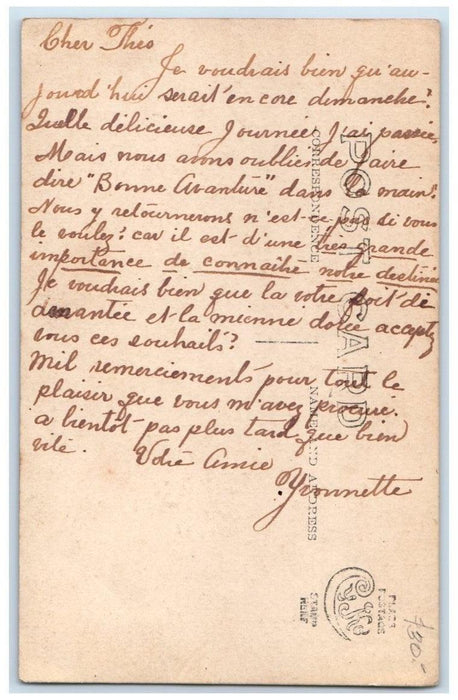 Cher Théo
Je voudrais bien qu'au-
jourd'hui serait encore dimanche?
Quelle délicieuse journée j'ai passée,
Mais nous avons oublier de faire
dire "Bonne Avanture" dans la main?
Nous y retournerons n'est-ce pas si vous
le voulez? car il est d'une très grande
importance de connaihe notre destinée
Je voudrais bien que la votre soit di-
amantée et la mienne dorée acceptez
vous ces souhaits?
Mil remerciements pour tout le
plaisir que vous m'avez procuré.
a bientot pas plus tard que bien
vite. Votre Amie
Yvonnette
POST CARD
CORRESPONDENCE
NAME AND ADDRESS
PLACE
POSTAGE
STAMP
HERE